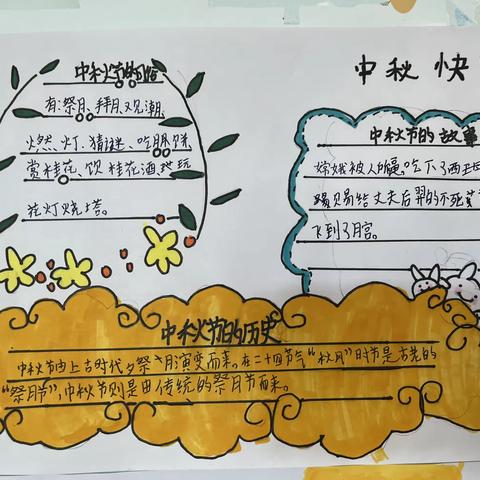 中秋快
中秋节的习俗
有:祭月、拜月、观潮、
燃灯、猜谜、吃月饼
赏桂花、饮桂花酒、玩
花灯烧塔。
中秋节的故事
嫦娥被人所逼吃下了西王母
赐给丈夫后羿的不死
飞到了月宫。
中秋节的历史
中秋节由上古时代夕祭月演变而来。在二十四节气“秋风”时节是古老的
“祭月节”,中秋节则是由传统的祭月节而来。